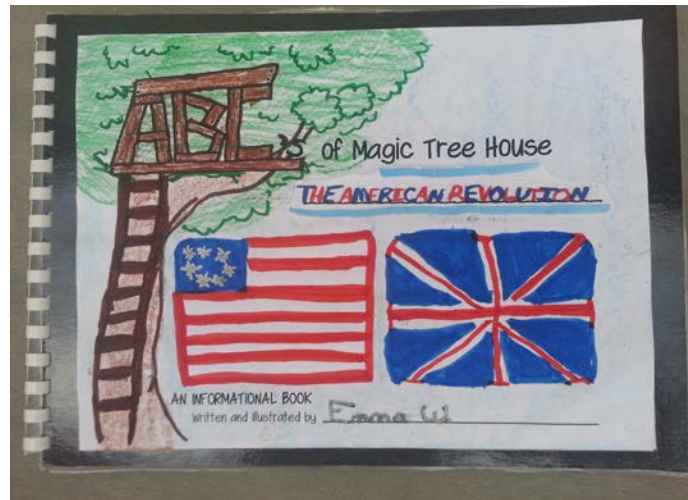 ABC's of Magic Tree House
THE AMERICAN REVOLUTION
AN INFORMATIONAL BOOK
Written and illustrated by Emma W